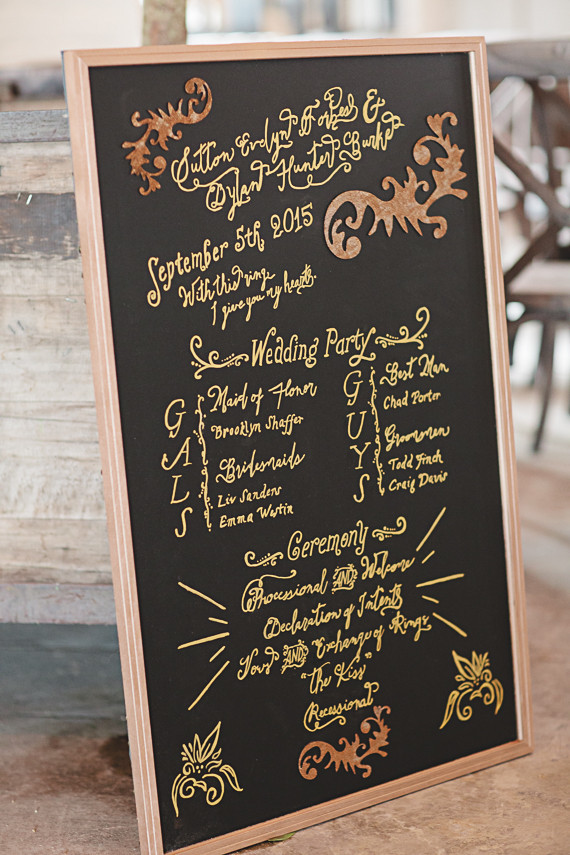 Sutton Evelyn Forbes &
Dylan Hunter Burke
September 5th 2015
With this ring,
I give you my heart.
Wedding Party
GALS
Maid of Honor
Brooklyn Shaffer
Bridesmaids
Liv Sanders
Emma Westin
GUYS
Best Man
Chad Porter
Groomsmen
Todd Finch
Craig Davis
Ceremony
Processional AND Welcome
Declaration of Intents
Vows AND Exchange of Rings
"The Kiss"
Recessional